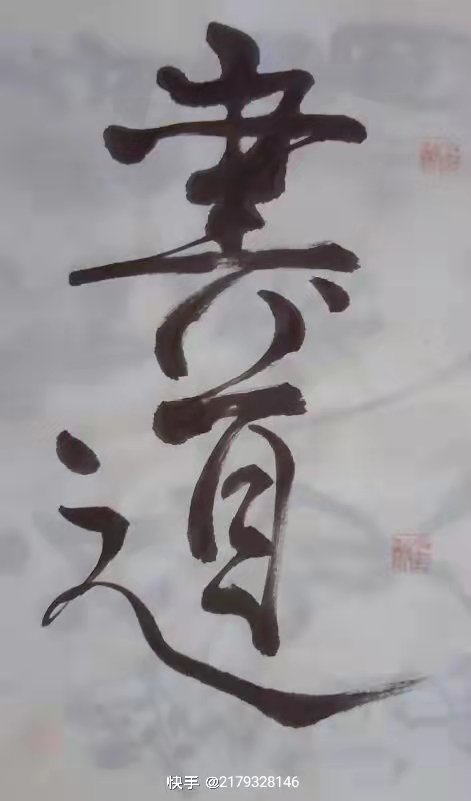 書道
快手 @2179328146